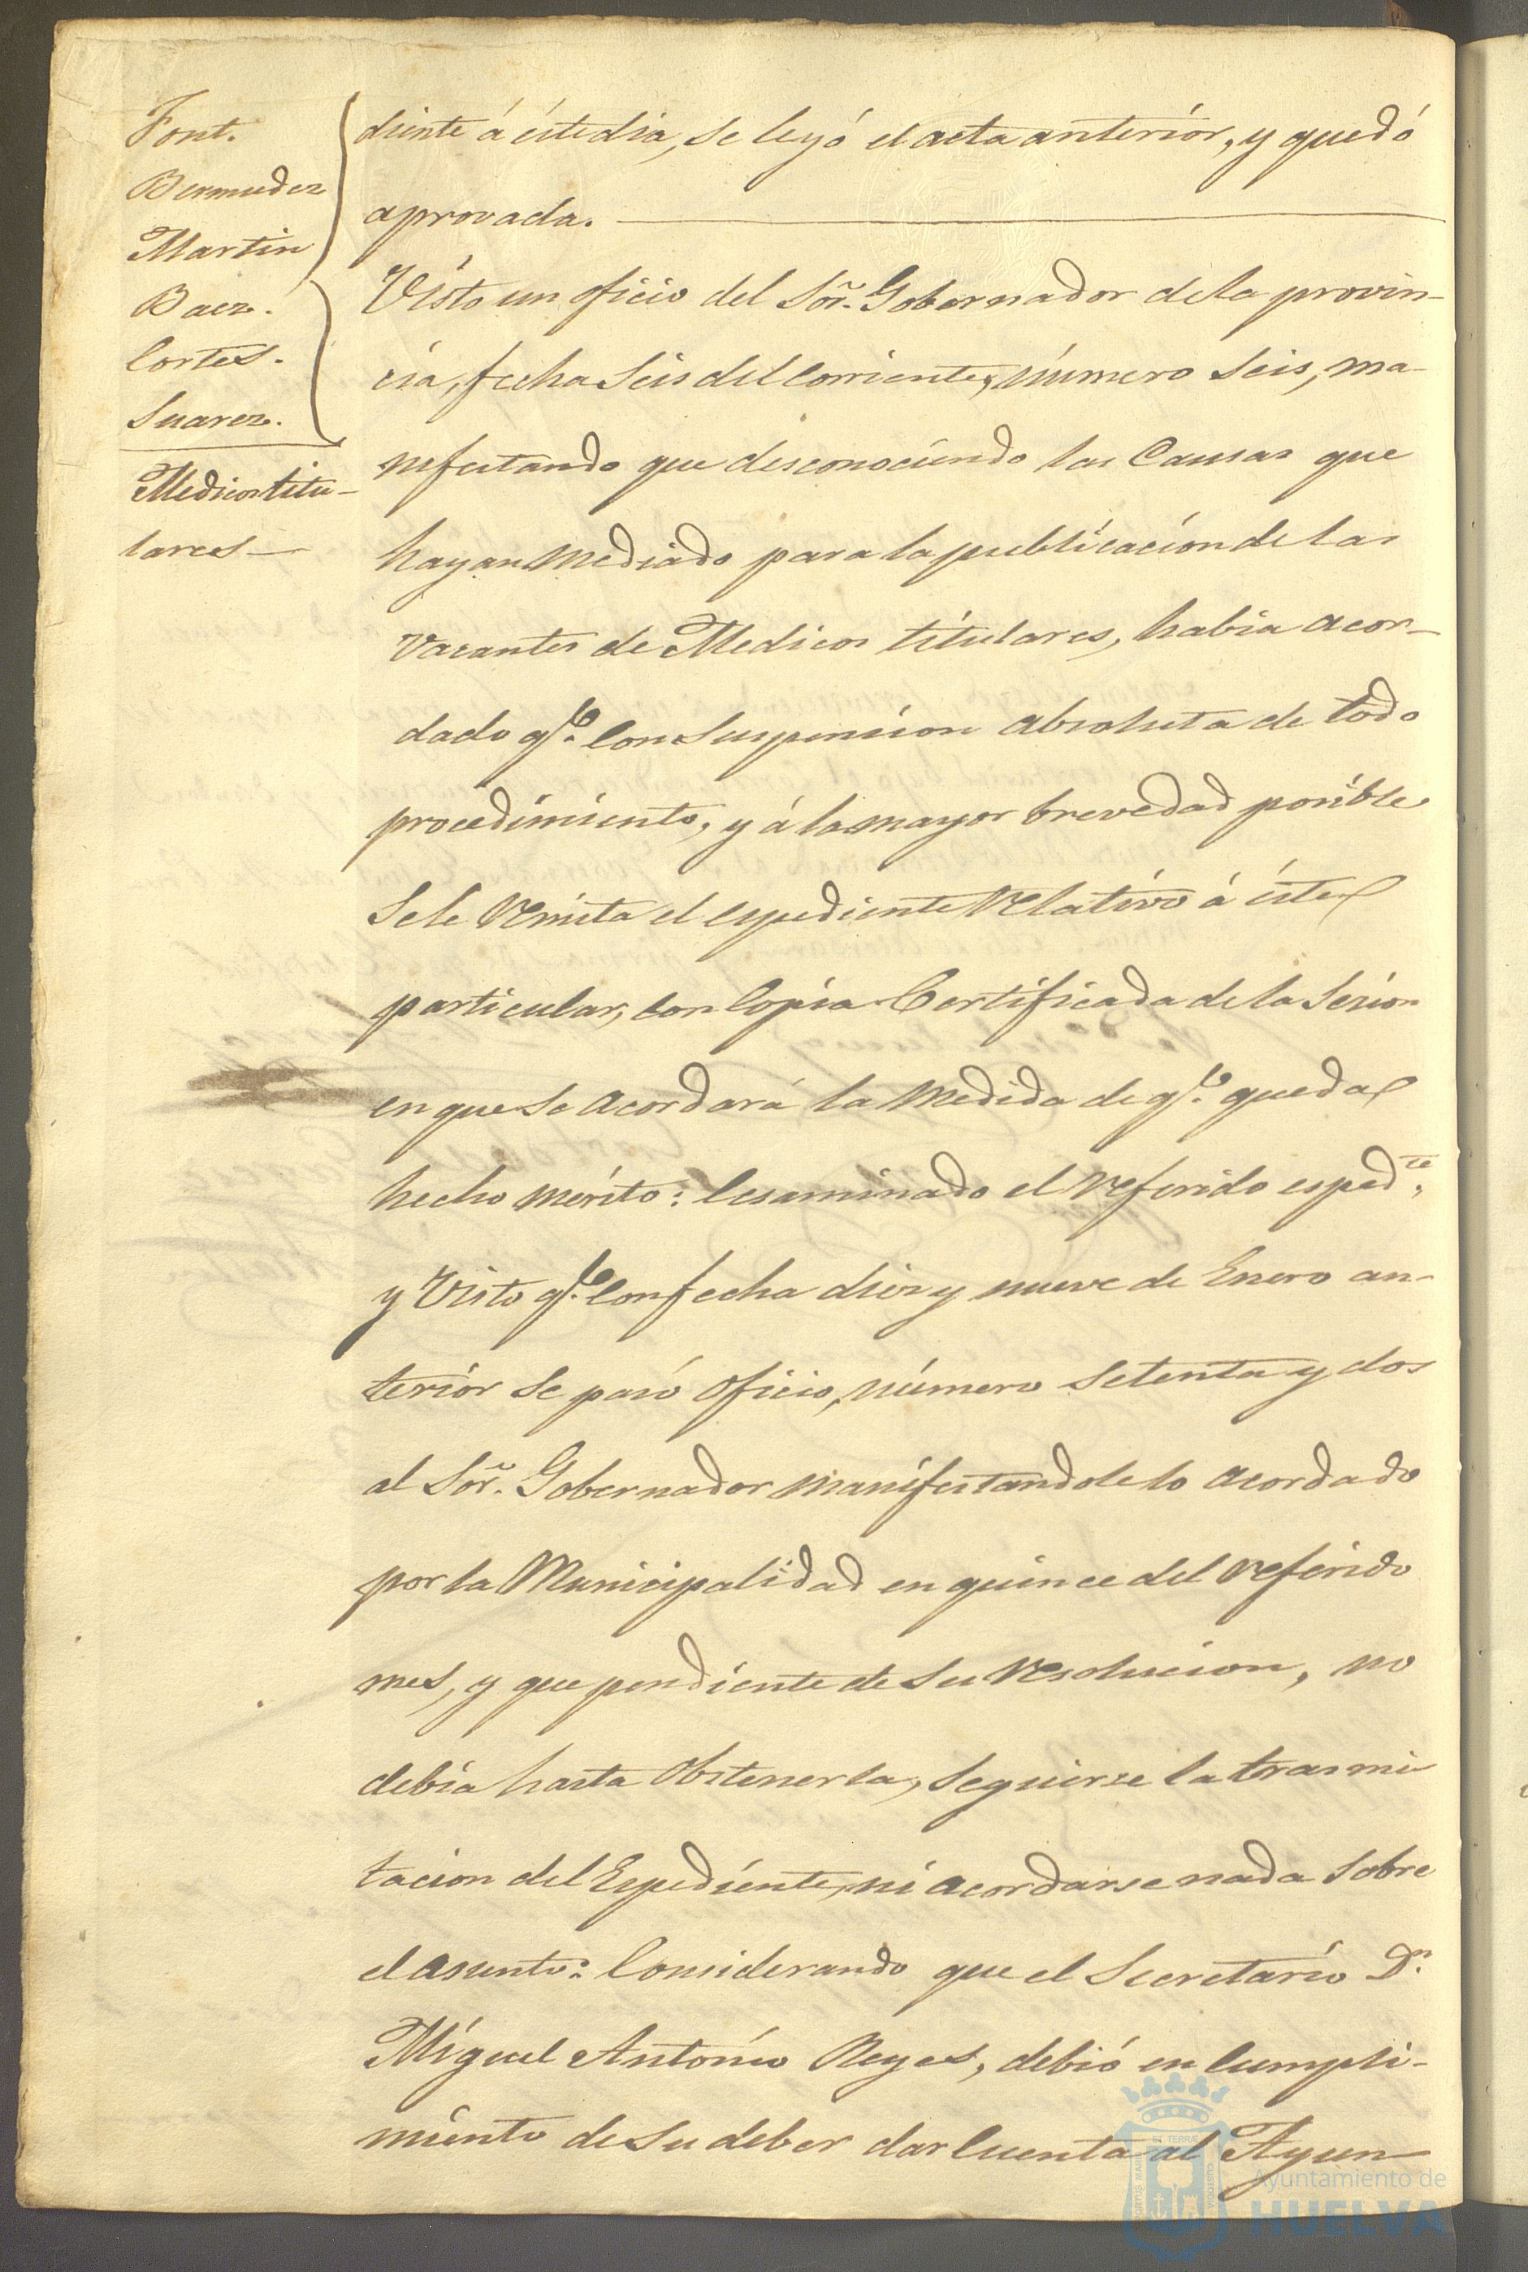 Font.
Bermudez
Martin
Baez.
Cortes.
Suarez.
Medicos titu-
lares-
diente á éste dia, se leyó el acta anteriór, y quedó
aprovada.
Visto un oficio del Sōr. Gobernador de la provin-
cia, fecha Seis del Corriente, número Seis, ma-
nifestando que desconociendo las Causas que
hayan Mediado para la públicacion de las
Vacantes de Medicos titulares, habia acor-
dado q.e con Suspension absoluta de todo
procedimiento, y á la mayor brevedad posible
Se le Remita el espediente Relativo á éste
particular, con Copia Certificada de la Sesion
en que se Acordará la Medida de q.e queda
hecho mérito: Ecsaminado el Referido esped.te,
y Visto q.e con fecha diez y nueve de Enero an-
teriór se pasó Oficio, número Setenta y dos
al Sōr. Gobernador Manifestandole lo Acordado
por la Municipalidad en quince del Referido
mes, y que pendiente de Su Resolucion, no
debia hasta Obtenerla, Seguirse la trasmi
tacion del Espediente, ni acordarse nada Sobre
el Asunto: Considerando que el Secretario D.n
Miguel Antonio Reyes, debió en Cumpli-
miento de Su deber dar Cuenta al Ayun
Ayuntamiento de
HUELVA